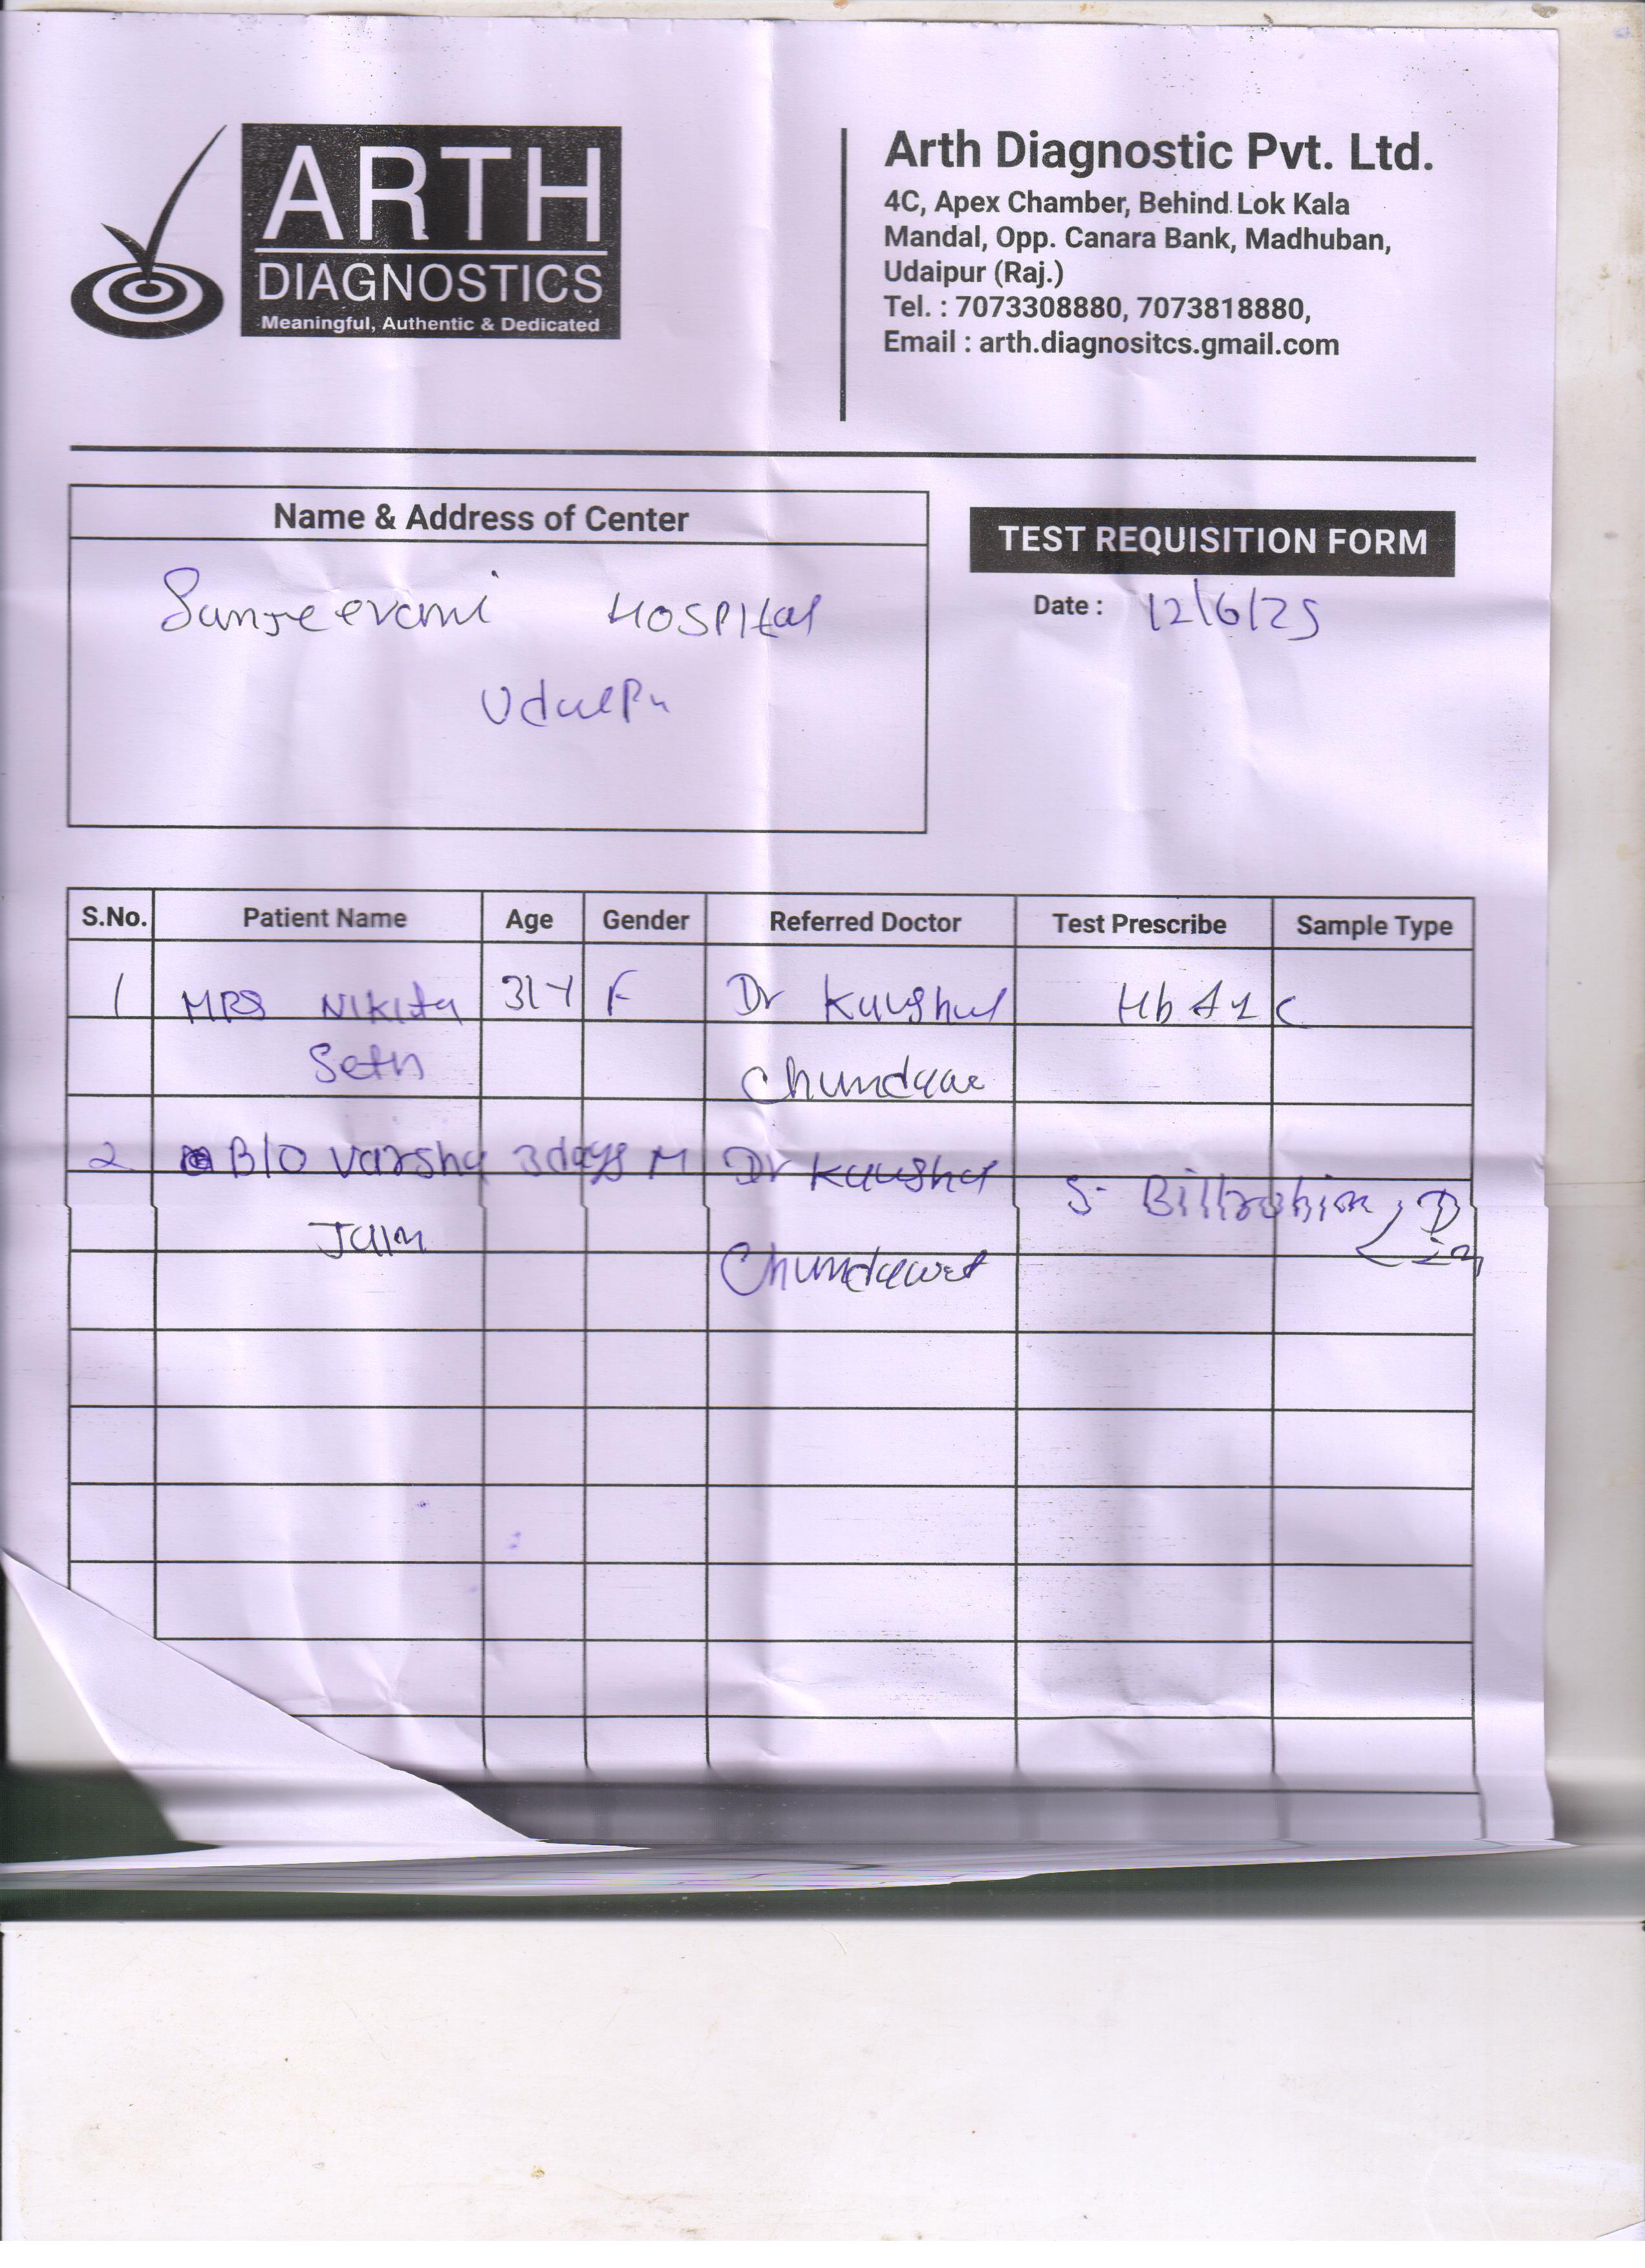 ARTH
DIAGNOSTICS
Meaningful, Authentic & Dedicated
Arth Diagnostic Pvt. Ltd.
4C, Apex Chamber, Behind Lok Kala
Mandal, Opp. Canara Bank, Madhuban,
Udaipur (Raj.)
Tel. : 7073308880, 7073818880,
Email : arth.diagnositcs.gmail.com
Name & Address of Center
Sanjeevani Hospital
TEST REQUISITION FORM
Date : 12/6/25
S.No. Patient Name Age Gender Referred Doctor Test Prescribe Sample Type
1 MRS Nikita 31Y F Dr Kaushal HbA1c
Seth
2 B/O Varsha 3days M Dr Kaushal S. Billrubin, D
Jain
Chundawat